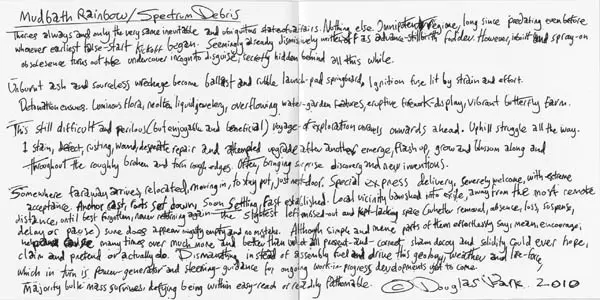 Mudbath Rainbow/Spectrum Debris
Theres always and only the very same inevitable and ubiquitous state of affairs. Nothing else. Omnipotent regime, long since predating even before
whatever earliest false-start kickoff began. Seemingly already dismissively written off as advance stillbirth fodder. However, inbuilt and spray-on
obsolescence turns out to be undercover incognito disguise, secretly hidden behind all this while.
Unburnt ash and sourceless wreckage become ballast and rubble launch-pad springboard, Ignition fuse lit by strain and effort.
Detonation ensues. Luminous flora, molten liquid jewelery, overflowing water-garden features, eruptive firework-display, vibrant butterfly farm.
This still difficult and perilous (but enjoyable and beneficial) voyage of exploration onwards ahead. Uphill struggle all the way.
I stain, defect, rusting, wound, desperate repair and attempted upgrade after another emerge, flash up, grow and blossom along and
throughout the roughly broken and torn rough edges. Often, bringing surprise discovery and new inventions.
Somewhere faraway arrives, relocated, moving in, to stay put, just next-door. Special express delivery, severely welcome, with extreme
acceptance. Anchor cast, roots set down, Soon settling, fast established. Local vicinity banished into exile, away from the most remote
distance, until best forgotten, never returning again. The slightest left missed-out and lacking space (whether removal, absence, loss, suspense,
delay or pause) sure does appear mighty empty and no mistake. Although simple and mere parts of them effortlessly say, mean, encourage,
help and cause many times over much more and better than what all present-and-correct sham decoy and solidity could ever hope,
claim and pretend or actually do. Dismantling instead of assembly fuel and drive this geology, weather and life-force,
which in turn is power-generator and steering-guidance for ongoing work-in-progress developments yet to come.
Majority bulk mass survives, defying being within easy-reach or readily fathomable. © Douglas Park. 2010